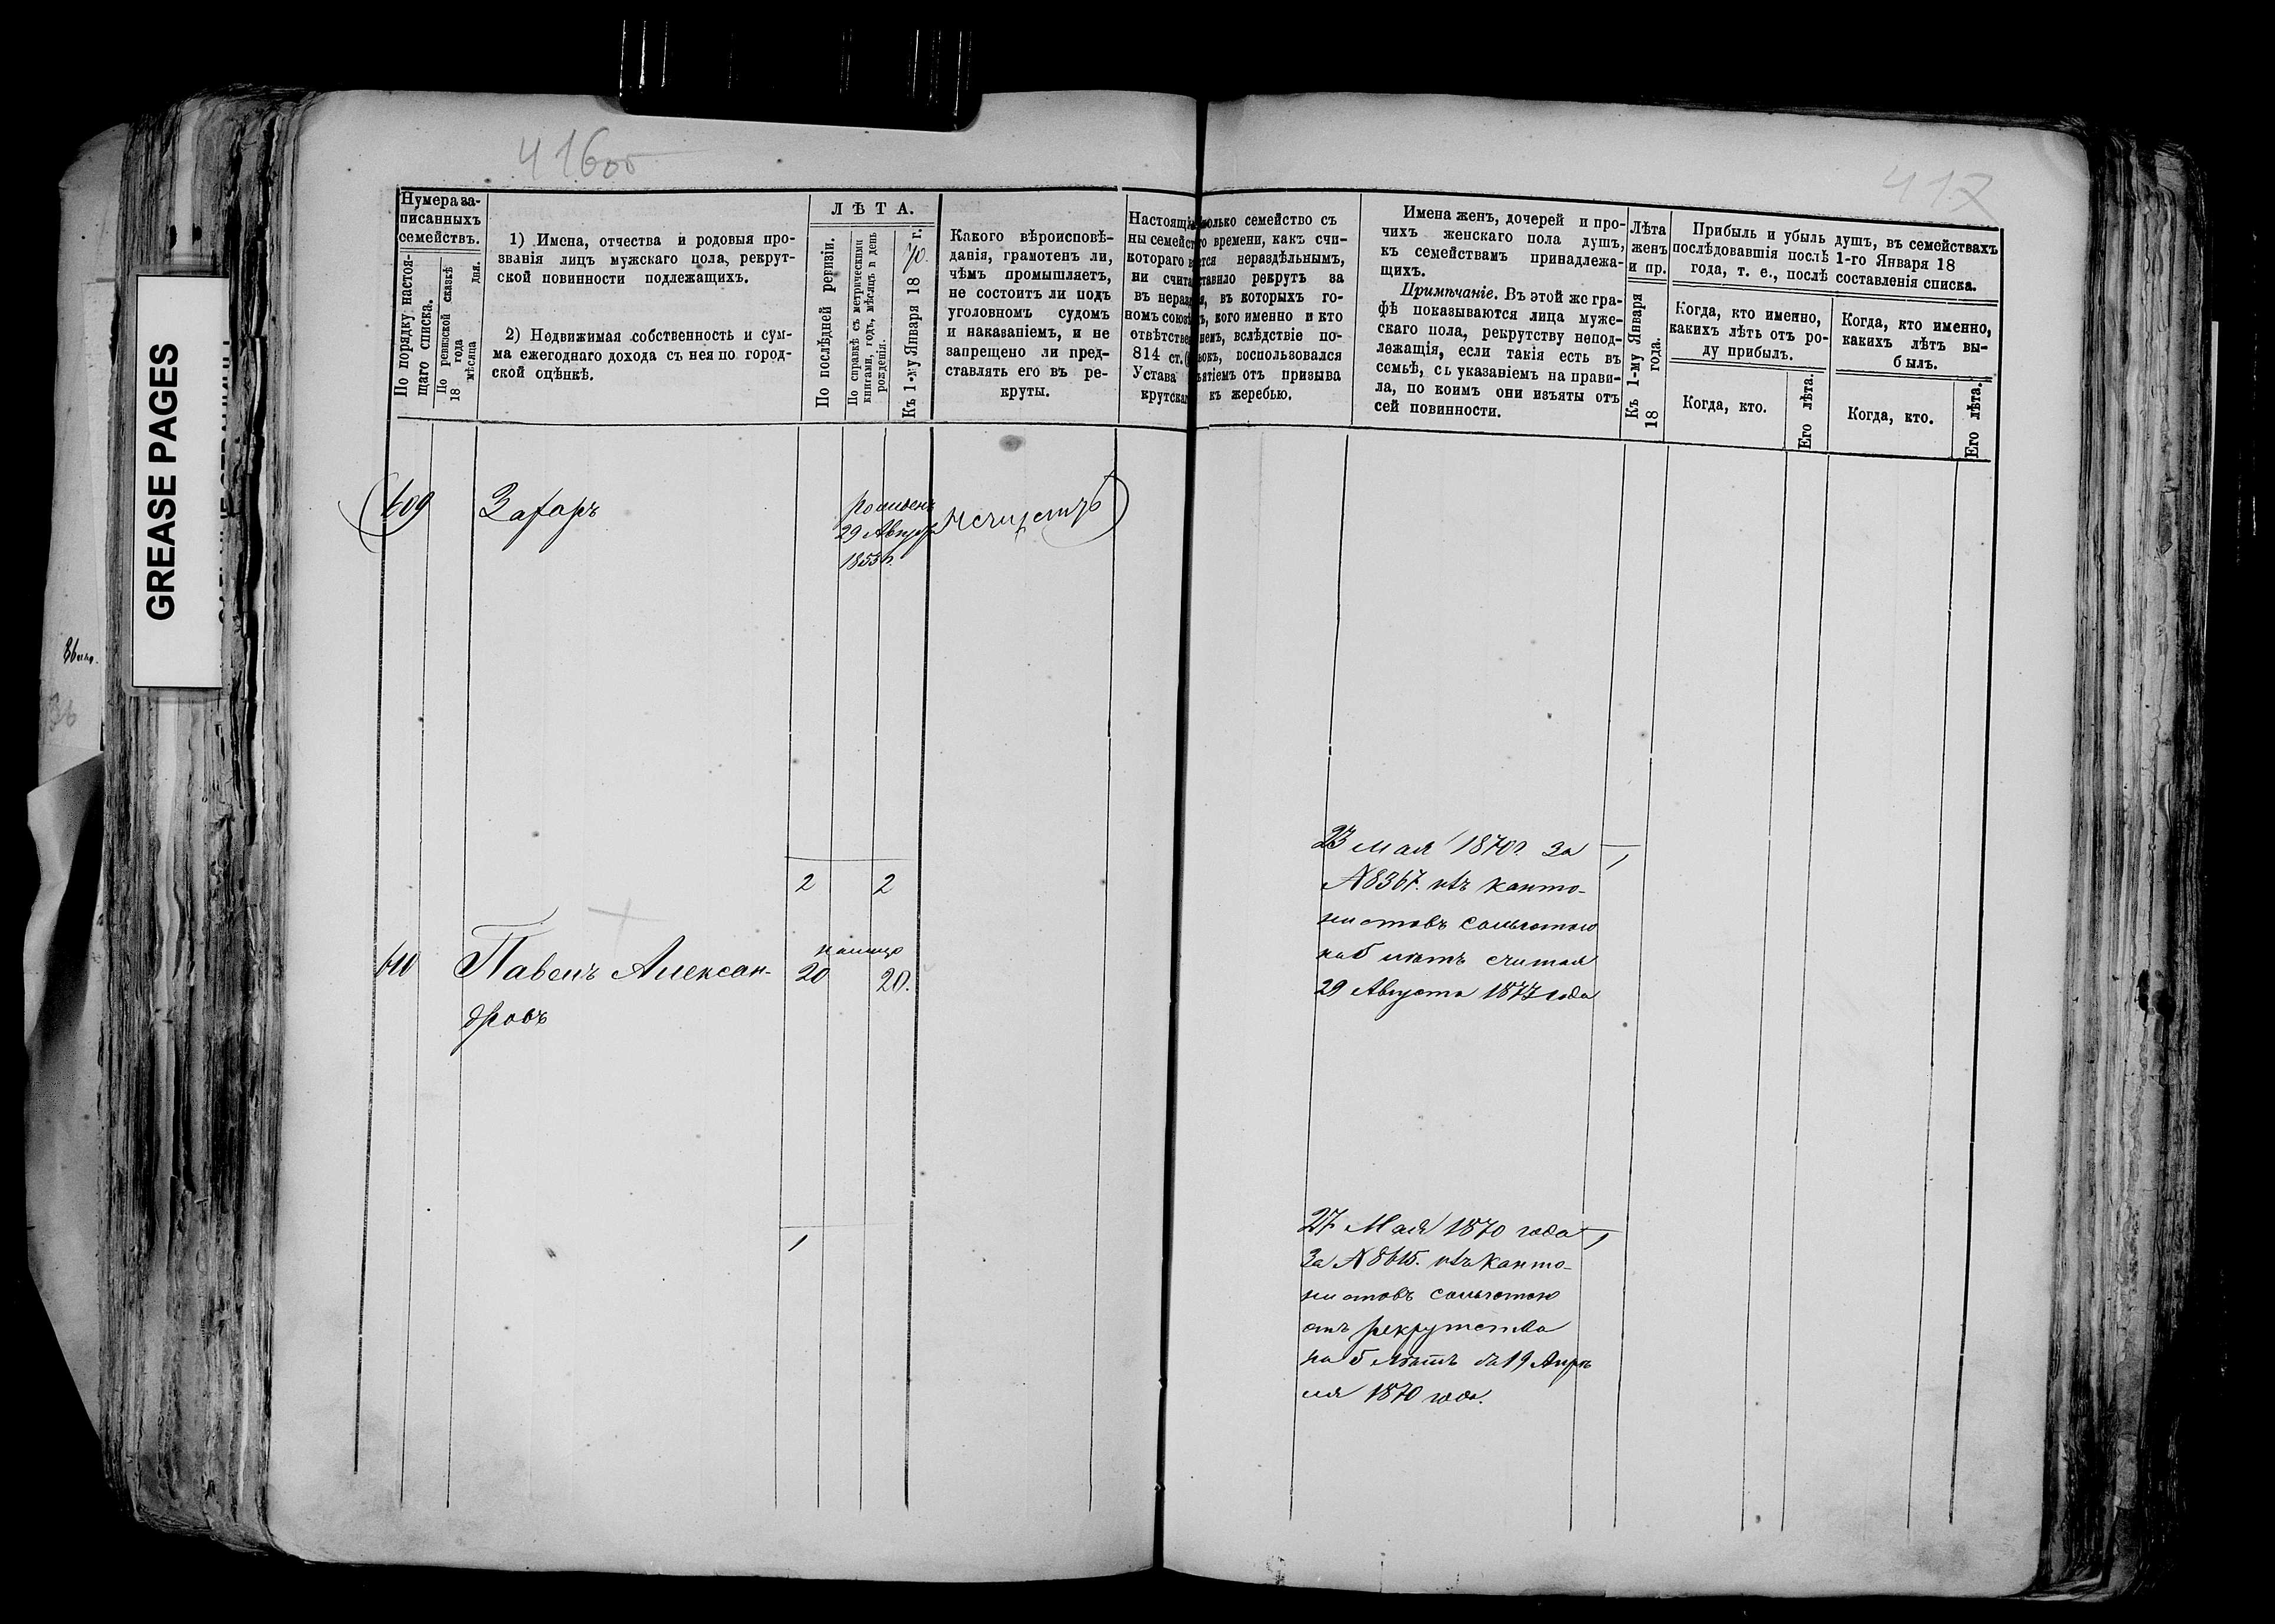 416об
417
GREASE PAGES
Нумера за-
писанныхъ
семействъ.
По порядку настоя-
щаго списка.
По ревизской сказкѣ
18 года
мѣсяца дня.
1) Имена, отчества и родовыя про-
званія лицъ мужскаго пола, рекрут-
ской повинности подлежащихъ.
2) Недвижимая собственность и сум-
ма ежегоднаго дохода съ нея по город-
ской оцѣнкѣ.
ЛѢТА.
По послѣдней ревизіи.
По справкѣ съ метрическими
книгами, годъ, мѣсяцъ и день
рожденія.
Къ 1-му Января 1870 г.
Какого вѣроисповѣ-
данія, грамотенъ ли,
чѣмъ промышляетъ,
не состоитъ ли подъ
уголовнымъ судомъ
и наказаніемъ, и не
запрещено ли пред-
ставлять его въ ре-
круты.
Настоящі
ны семейст
котораго в
ни счита
въ нераз
номъ союз
отвѣтстве
814 ст.
Устава
крутска
олько семейство съ
го времени, какъ счи-
ется нераздѣльнымъ,
ставило рекрутъ за
я, въ которыхъ го-
ъ, кого именно и кто
немъ, вслѣдствіе по-
ьокъ, воспользовался
ъятіемъ отъ призыва
къ жеребью.
Имена женъ, дочерей и про-
чихъ женскаго пола душъ,
къ семействамъ принадлежа-
щихъ.
Примѣчаніе. Въ этой же гра-
фѣ показываются лица муже-
скаго пола, рекрутству непод-
лежащія, если такія есть въ
семьѣ, съ указаніемъ на прави-
ла, по коимъ они изъяты отъ
сей повинности.
Лѣта
женъ
и пр.
Къ 1-му Января
18 года.
Прибыль и убыль душъ, въ семействахъ
послѣдовавшія послѣ 1-го Января 18
года, т. е., послѣ составленія списка.
Когда, кто именно,
какихъ лѣтъ отъ ро-
ду прибылъ.
Когда, кто.
Его лѣта.
Когда, кто именно,
какихъ лѣтъ вы-
былъ.
Когда, кто.
Его лѣта.
609 Захаръ
29 Август
1855 г.
23 мая 1870 г. за
№ 8367. изъ канто-
нистовъ сольготою
на 5 лѣтъ считая
29 Августа 1877 года
1
2 2
610 Павелъ Алексан-
дровъ
20 20.
1
27 Мая 1870 года
за № 8615. изъ канто-
нистовъ сольготою
отъ рекрутства
на 5 лѣтъ 19 Апрѣ
ля 1870 года.
1